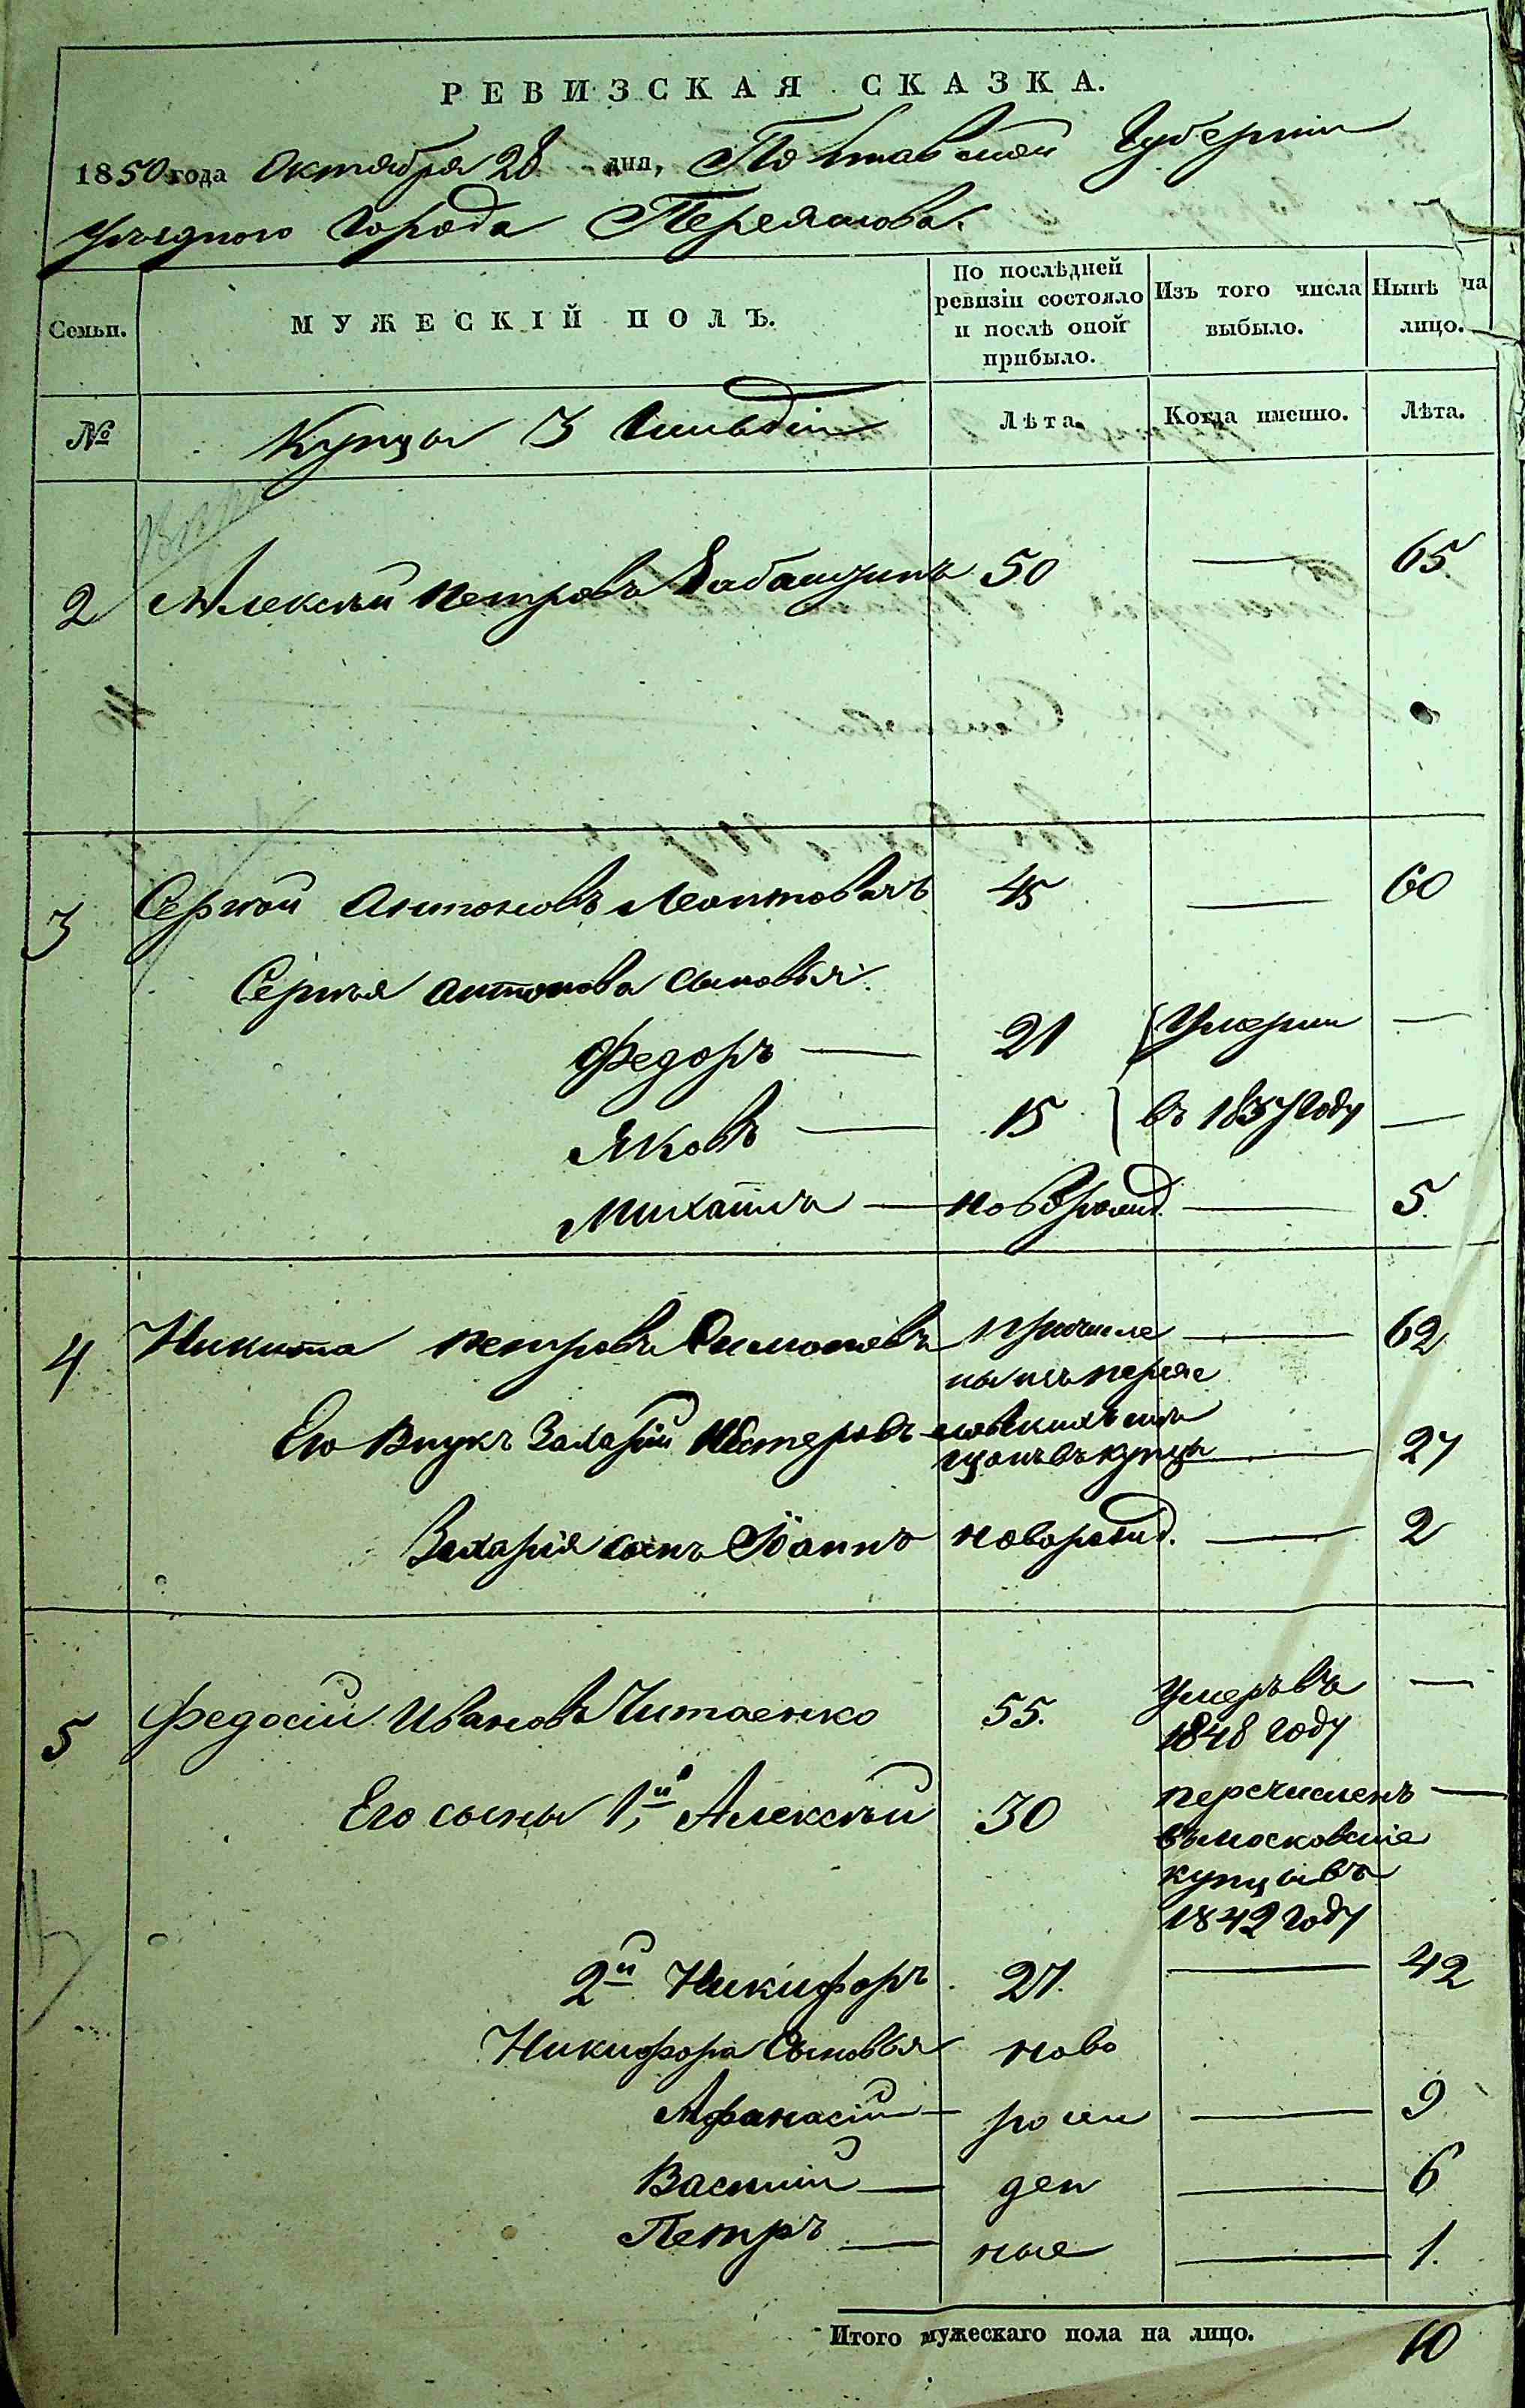 РЕВИЗСКАЯ СКАЗКА.
1850 года Октября 28 дня, Полтавской Губернии
Уѣзднаго Города Переяслова.
Семьи.
МУЖЕСКІЙ ПОЛЪ.
По послѣдней ревизіи состояло и послѣ оной прибыло.
Изъ того числа выбыло.
Нынѣ на лицо.
№
Купцы 3 Гильдіи
Лѣта.
Когда именно.
Лѣта.
2 Алексѣй Петровъ 50 — 65
3 Сергѣй Антоновъ Леонтовичъ 45 — 60
Сергѣя Антонова сыновья.
Федоръ — 21 Умерли —
Яковъ — 15 въ 1837 году —
Михаилъ — новорожд. — 5.
4 Никита Петровъ Симоновъ причисле — 62
ны изъ перяс
Его Внукъ Захарій Нестеровъ ловскихъ мѣ
щанъ въ купцы — 27
Захарія сынъ Іоаннъ новорожд. — 2
5 Федосій Ивановъ Читаенко 55. Умеръ въ —
1848 году
Его сыны 1й, Алексѣй 30 перечисленъ —
въ московскіе
купцы въ
1842 году
2й Никифоръ 27. — 42
Никифора Сыновья ново
Афанасій — рож — 9
Василій — ден — 6
Петръ — ные — 1.
Итого мужескаго пола на лицо. 10